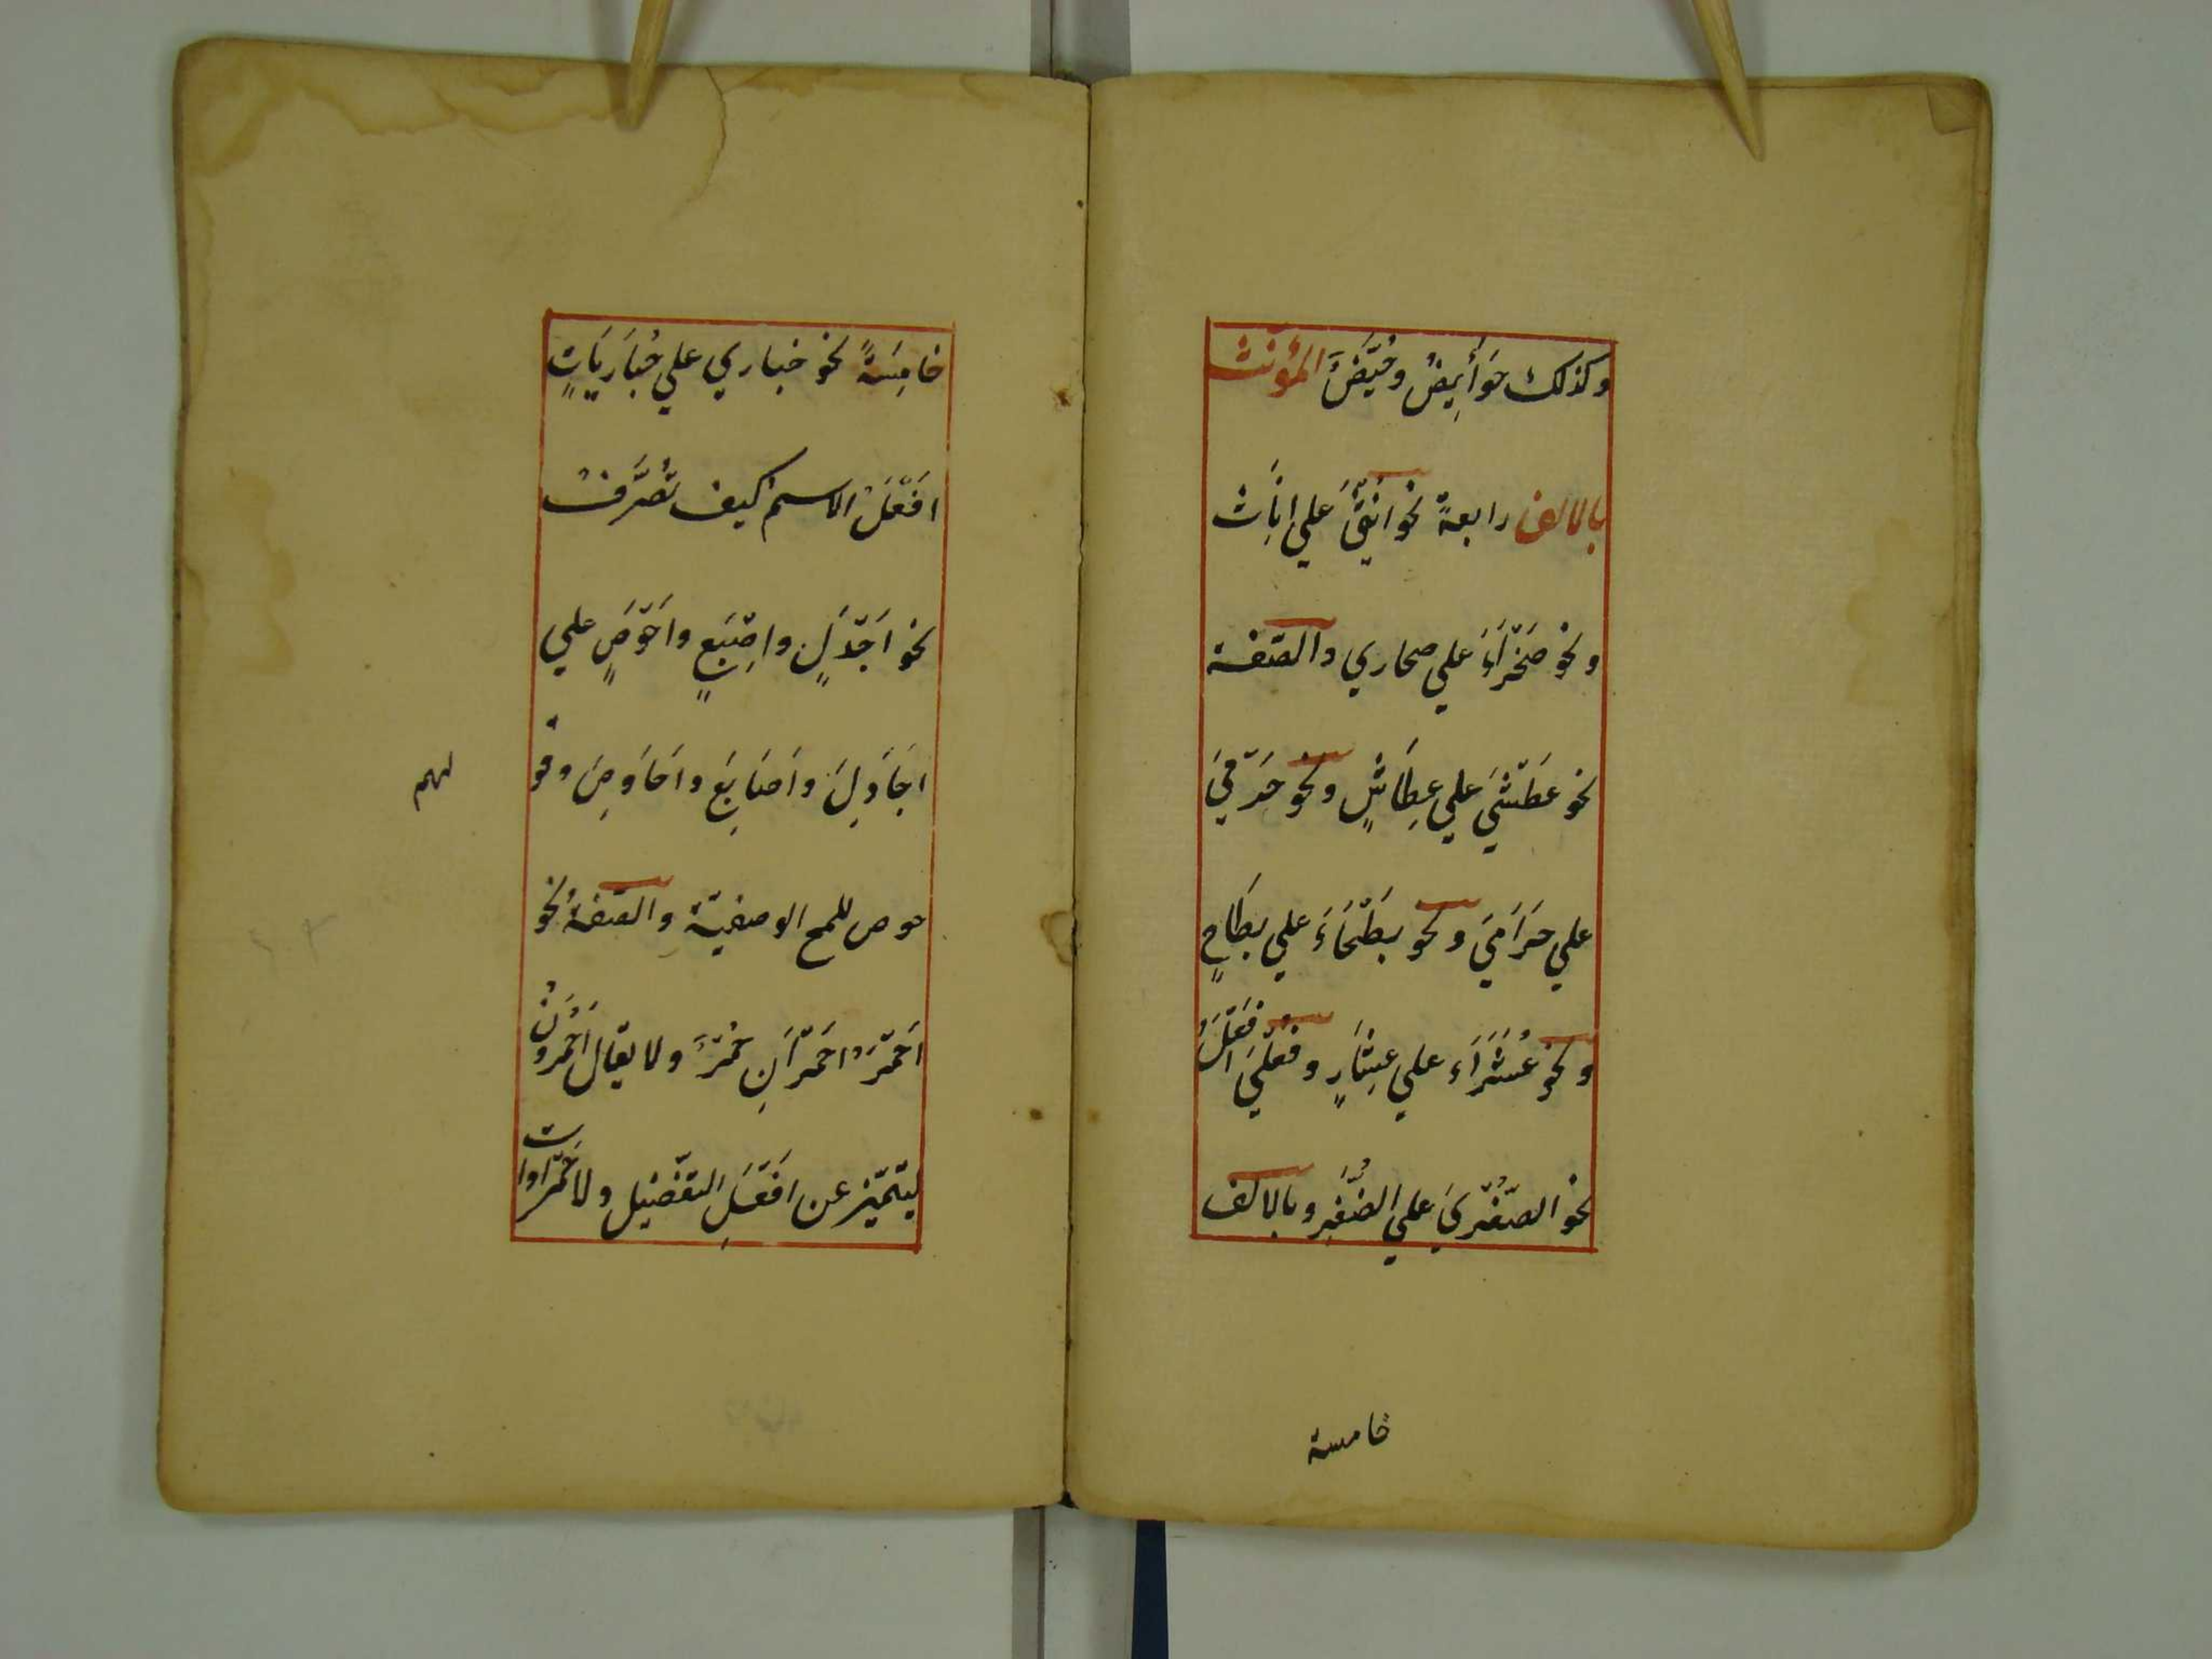 وكذلك حَوَائِيضُ وحُيَّضٌ المُؤنَث
بالالف رابعةً نحو انْثَي عَلي اِنَاث
ونحو صَحْرَاءَ علي صحاري والصّفة
نحو عَطْشَي علي عِطَاشٍ ونحو حَرْمَيَ
علي حَرَامَي ونحو بَطْحَاءَ علي بِطَاحٍ
ونحو عُشَرَاءَ علي عِشَارٍ وفُعْلَي افْعَلَ
نحو الصُّغْرَي علي الصُّغَرِ وبالالف
خامسة
خامِسَةً نحو حباري علي حُبَارَيَاتٍ
افْعَلُ الاسم كيف تُصُرِّفُ
نحو اَجْدَلٍ واِصْبَعٍ واَحْوَصٍ علي
اجَادِلَ واَصَابِعَ واَحَاوِصَ وقو
حوص للمح الوصفيّة والصّفةُ نحو
اَحْمَرُ احْمَرَانِ حُمْرٌ ولا يقال اَحْمَرُونُ
ليتميّز عن اَفْعَلِ التفْضيل ولا حَمْرَاوات
لهم